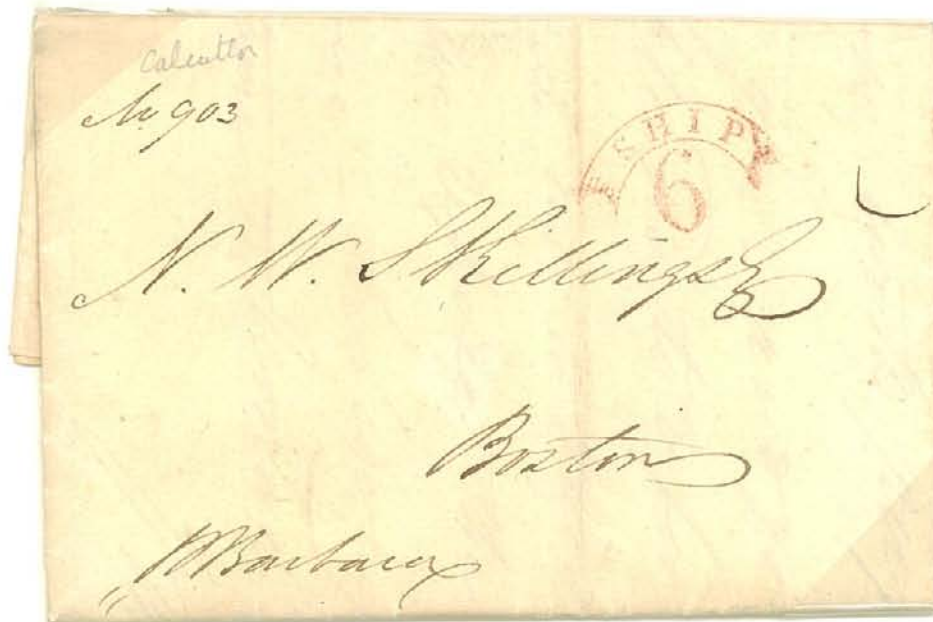 Calcutta
No 903
SHIP
6
N. W. Skillings Esq
Boston
p Barbara